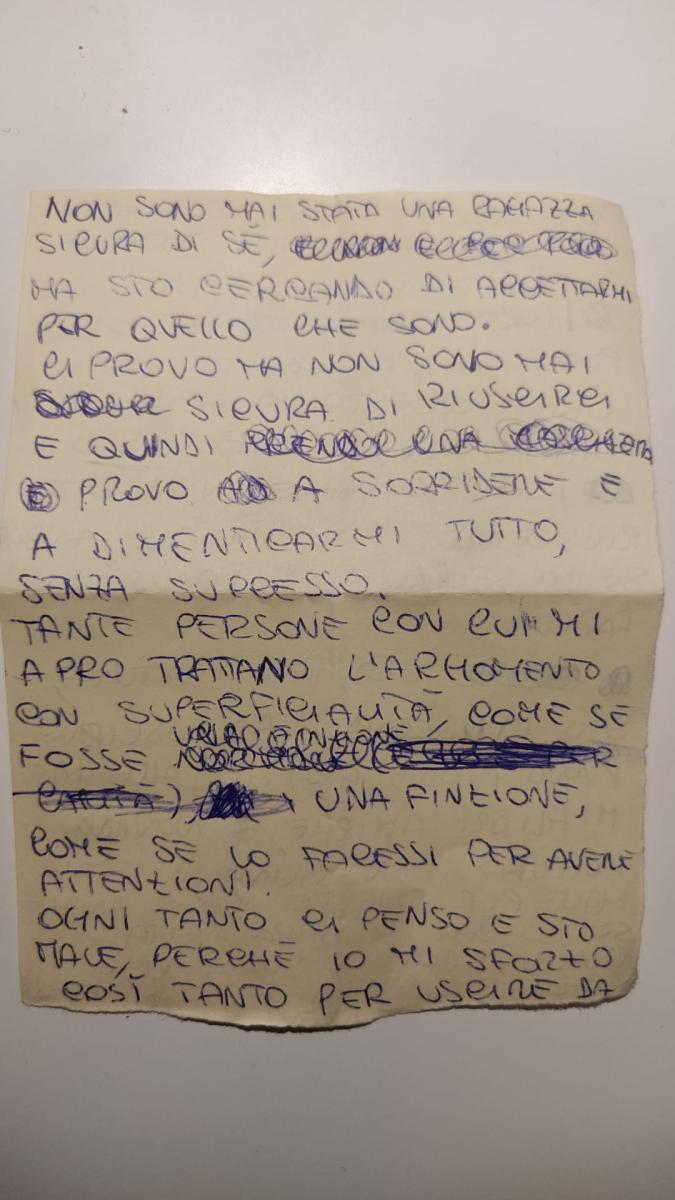 NON SONO MAI STATA UNA RAGAZZA
SICURA DI SÉ,
MA STO CERCANDO DI ACCETTARMI
PER QUELLO CHE SONO.
CI PROVO MA NON SONO MAI
SICURA DI RIUSCIRCI
E QUINDI PRENDO UNA
PROVO A SORRIDERE E
A DIMENTICARMI TUTTO,
SENZA SUCCESSO.
TANTE PERSONE CON CUI MI
APRO TRATTANO L'ARMOMENTO
CON SUPERFICIALITÀ, COME SE
FOSSE PER
UNA FINZIONE,
COME SE LO FACESSI PER AVERE
ATTENZIONI.
OGNI TANTO CI PENSO E STO
MALE, PERCHÈ IO MI SFORZO
COSÌ TANTO PER USCIRE DA